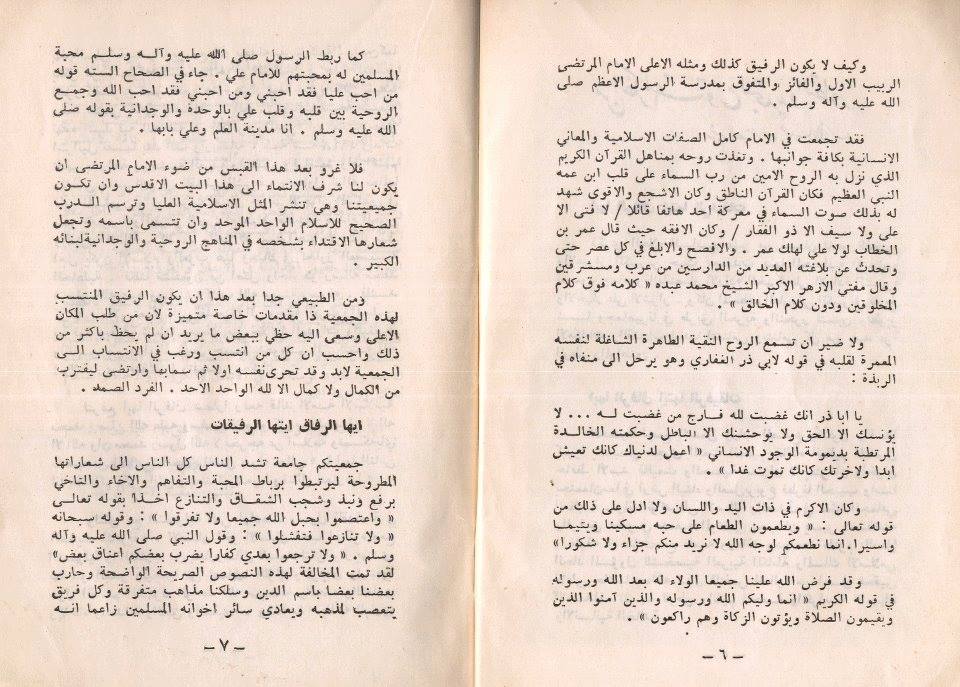 وكيف لا يكون الرفيق كذلك ومثله الاعلى الامام المرتضى
الربيب الاول والفائز والمتفوق بمدرسة الرسول الاعظم صلى
الله عليه وآله وسلم .
فقد تجمعت في الامام كامل الصفات الاسلامية والمعاني
الانسانية بكافة جوانبها . وتغذت روحه بمناهل القرآن الكريم
الذي نزل به الروح الامين من رب السماء على قلب ابن عمه
النبي العظيم فكان القرآن الناطق وكان الاشجع والاقوى شهد
له بذلك صوت السماء في معركة احد هاتفا قائلا / لا فتى الا
على ولا سيف الا ذو الفقار / وكان الافقه حيث قال عمر بن
الخطاب لولا علي لهلك عمر . والافصح والابلغ في كل عصر حتى
وتحدث عن بلاغته العديد من الدارسين من عرب ومستشرقين
وقال مفتي الازهر الاكبر الشيخ محمد عبده « كلامه فوق كلام
المخلوقين ودون كلام الخالق » .
ولا ضير ان تسمع الروح النقية الطاهرة الشاغلة لنفسه
المعمرة لقلبه في قوله لابي ذر الغفاري وهو يرحل الى منفاه في
الربذة :
يا ابا ذر انك غضبت لله فارج من غضبت له ... لا
يؤنسك الا الحق ولا يوحشنك الا الباطل وحكمته الخالدة
المرتطبة بديمومة الوجود الانساني « اعمل لدنياك كانك تعيش
ابدا ولاخرتك كانك تموت غدا » .
وكان الاكرم في ذات اليد واللسان ولا ادل على ذلك من
قوله تعالى : « ويطعمون الطعام على حبه مسكينا ويتيما
واسيرا.انما نطعمكم لوجه الله لا نريد منكم جزاء ولا شكورا»
وقد فرض الله علينا جميعا الولاء له بعد الله ورسوله
في قوله الكريم « انما وليكم الله ورسوله والذين آمنوا الذين
ويقيمون الصلاة ويؤتون الزكاة وهم راكعون » .
– ٦ –
كما ربط الرسول صلى الله عليه وآله وسلم محبة
المسلمين له بمحبتهم للامام علي . جاء في الصحاح السته قوله
من احب عليا فقد احبني ومن احبني فقد احب الله وجمع
الروحية بين قلبه وقلب علي بالوحدة والوجدانية بقوله صلى
الله عليه وسلم . انا مدينة العلم وعلي بابها .
فلا غرو بعد هذا القبس من ضوء الامام المرتضى ان
يكون لنا شرف الانتماء الى هذا البيت الاقدس وان تكون
جميعيتنا وهي تنشر المثل الاسلامية العليا وترسم الدرب
الصحيح للاسلام الواحد الموحد وان تتسمى باسمه وتجعل
شعارها الاقتداء بشخصه في المناهج الروحية والوجدانيةلبنائه
الكبير .
زمن الطبيعي جدا بعد هذا ان يكون الرفيق المنتسب
لهذه الجمعية ذا مقدمات خاصة متميزة لان من طلب المكان
الاعلى وسعى اليه حظي ببعض ما يريد ان لم يحظ باكثر من
ذلك واحسب ان كل من انتسب ورغب في الانتساب الى
الجمعية لابد وقد تحرىنفسه اولا ثم سمابها وارتضى ليقترب
من الكمال ولا كمال الا لله الواحد الاحد . الفرد الصمد .
ايها الرفاق ايتها الرفيقات
جمعيتكم جامعة تشد الناس كل الناس الى شعاراتها
المطروحة ليرتبطوا برباط المحبة والتفاهم والاخاء والتاخي
برفع ونبذ وشجب الشقاق والتنازع اخذا بقوله تعالى
« واعتصموا بحبل الله جميعا ولا تفرقوا » : وقوله سبحانه
« ولا تنازعوا فتفشلوا » : وقول النبي صلى الله عليه وآله
وسلم . « ولا ترجعوا بعدي كفارا يضرب بعضكم اعناق بعض»
لقد تمت المخالفة لهذه النصوص الصريحة الواضحة وحارب
بعضنا بعضا باسم الدين وسلكنا مذاهب متفرقة وكل فريق
يتعصب لمذهبه ويعادي سائر اخوانه المسلمين زاعما انه
– ٧ –